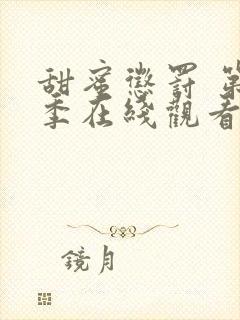 甜蜜懲罰 第
季在綫觀看
鏡月